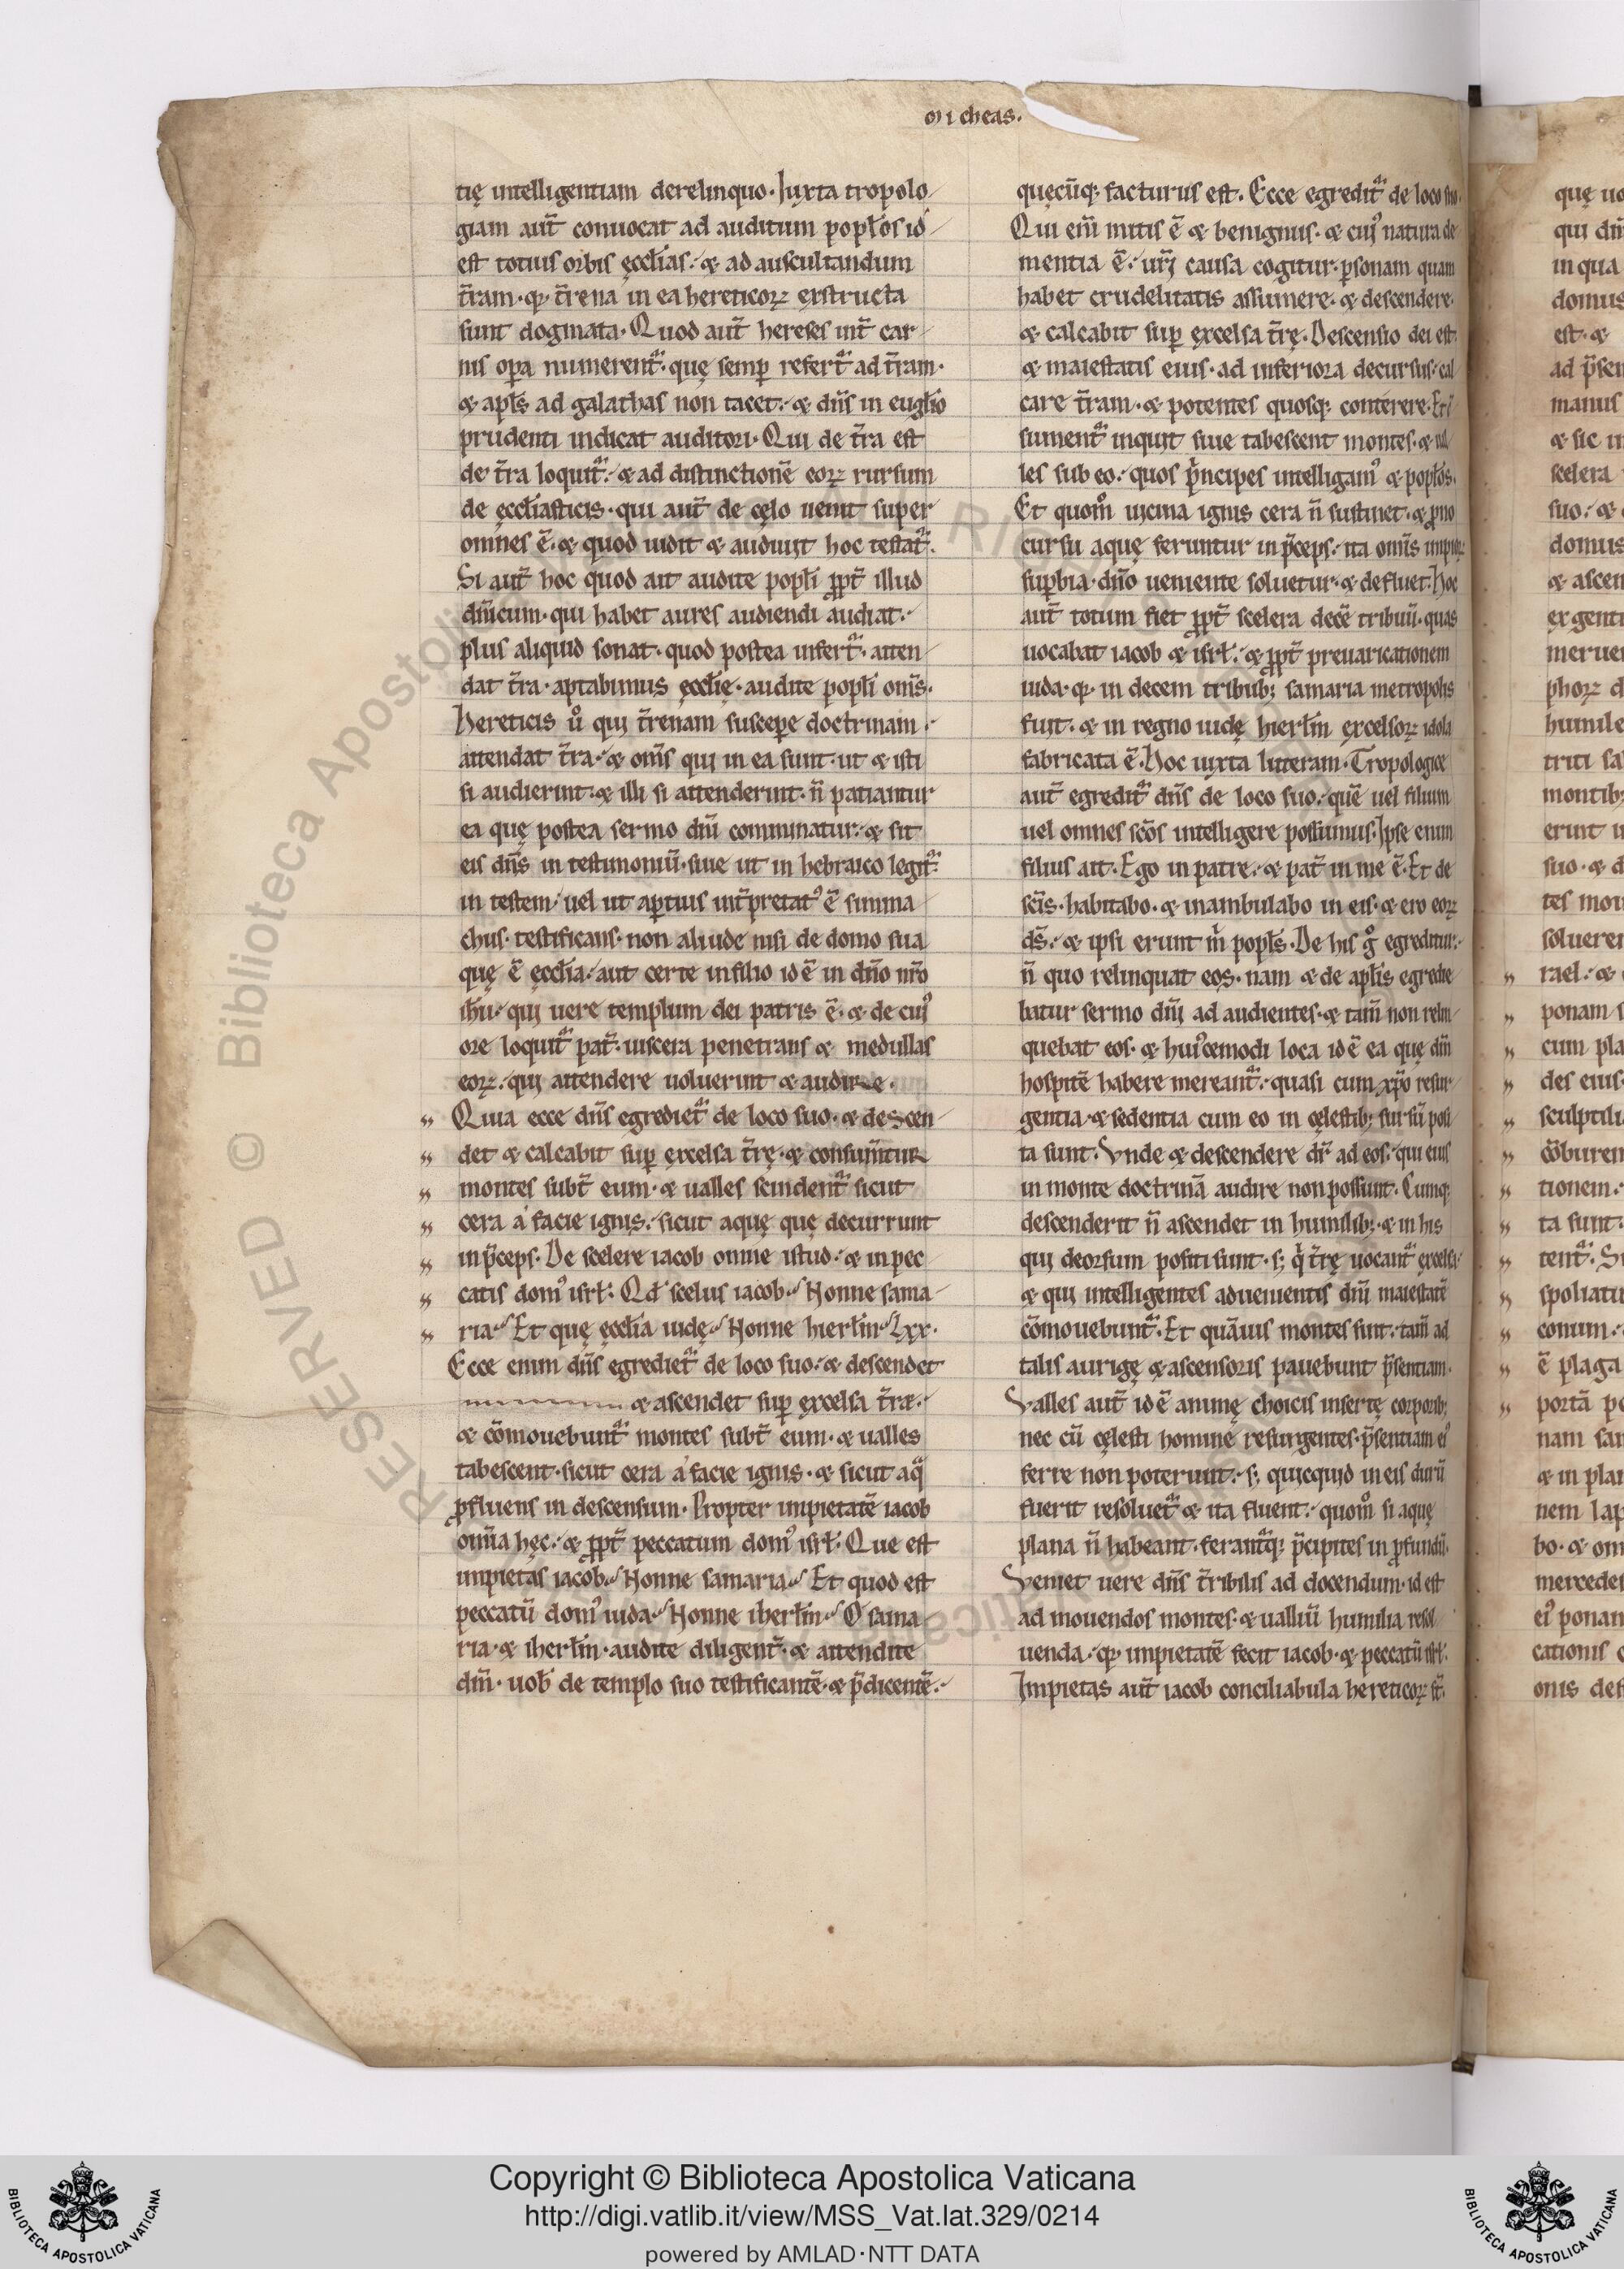 Micheas.
tię intelligentiam derelinquo. Iuxta tropolo
giam aut̄ conuocat ad auditum poplos id
est totius orbis ęccl̄ias. & ad auscultandum
t̄ram. t̄rena in ea hereticoꝝ exstructa
sunt dogmata. Quod aut̄ hereses int̄ car
nis opa numerent᷑. quę semp refert᷑ ad t̄ram.
& apl̄s ad galathas non tacet. & dn̄s in euglīo
prudenti indicat auditori. Qui de t̄ra est
de t̄ra loquit᷑. & ad distinctionē eoꝝ rursum
de ęccl̄iasticis. qui aut̄ de cęlo uenit super
omnes ē. & quod uidit & audiuit hoc testat᷑.
Si aut̄ hoc quod ait audite popl̄i ꝓpt̄ illud
dn̄icum. qui habet aures audiendi audiat.
plus aliquid sonat. quod postea infert᷑. atten
dat t̄ra. aptabimus ęccl̄ię. audite popl̄i om̄s.
Hereticis ů qui t̄renam suscepe doctrinam.
attendat t̄ra. & om̄s qui in ea sunt. ut & isti
si audierint. & illi si attenderint. n̄ patiantur
ea quę postea sermo dn̄i comminatur. & sit
eis dn̄s in testimoniū. siue ut in hebraico legit᷑.
in testem. uel ut aptius int̄pretatꝰ ē simma
chus. testificans. non aliude nisi de domo sua
quę ē ęccl̄ia. aut certe in filio id ē in dn̄o nr̄o
ihu. qui uere templum dei patris ē. & de cuiꝰ
ore loquit᷑ pat̄. uiscera penetrans & medullas
eoꝝ. qui attendere uoluerint & audire.
Quia ecce dn̄s egrediet᷑ de loco suo. & descen
det & calcabit sup excelsa t̄rę. & consum̄tur
montes subt̄ eum. & ualles scindent᷑ sicut
cera a facie ignis. sicut aquę quę decurrunt
in p̄ceps. De scelere iacob omne istud. & in pec
catis domꝰ isrl̄. Qd̄ scelus iacob. Nonne sama
ria. Et quę ęccl̄ia iudę. Nonne hierlm̄. Lxx.
Ecce enim dn̄s egrediet᷑ de loco suo. & descendet
& ascendet sup excelsa t̄ræ.
& cōmouebunt᷑ montes subt̄ eum. & ualles
tabescent. sicut cera a facie ignis. & sicut aqͣ
ꝓfluens in descensum. Propter impietatē iacob
om̄ia hęc. & ꝓpt̄ peccatum domꝰ isrl̄. Que est
impietas iacob. Nonne samaria. Et quod est
peccatū domꝰ iuda. Nonne iherlm̄. O sama
ria. & iherlm̄. audite diligent̄. & attendite
dn̄m. uob̄ de templo suo testificantē. & p̄dicentē.
quęcūq; facturus est. Ecce egredit᷑ de loco suo.
Qui eni mitis ē & benignus. & cuiꝰ natura cle
mentia ē. uri causa cogitur. psonam quam
habet crudelitatis assumere. & descendere.
& calcabit sup excelsa t̄rę. Descensio dei est.
& maiestatis eius. ad inferiora decursus. cal
care t̄ram. & potentes quosq; conterere. Et
sument᷑ inquit siue tabescent montes. & ual
les sub eo. quos pͥncipes intelligamꝰ & popl̄os.
Et quom̊ uicina ignis cera n̄ sustinet. & ꝓno
cursu aquę feruntur in p̄ceps. ita om̄is impioꝝ
supbia. dn̄o ueniente soluetur. & defluet. Hoc
aut̄ totum fiet ꝓpt̄ scelera decē tribuū. quas
uocabat iacob & isrl̄. & ꝓpt̄ preuaricationem
iuda. in decem tribub; samaria metropolis
fuit. & in regno iudę hierlm̄ excelsoꝝ idola
fabricata ē. Hoc iuxta litteram. Tropologice
aut̄ egredit᷑ dn̄s de loco suo. quē uel filium
uel omnes sc̄os intelligere possumus. Ipse enim
filius ait. Ego in patre. & pat̄ in me ē. Et de
sc̄is. habitabo. & inambulabo in eis. & ero eoꝝ
ds̄. & ipsi erunt m̊ popl̄s. De his g̊ egreditur.
n̄ quo relinquat eos. nam & de apl̄is egredie
batur sermo dn̄i ad audientes. & tam̄ non relin
quebat eos. & huiꝰcemodi loca id ē ea quę dn̄m
hospitē habere mereant᷑. quasi cum xp̄o resur
gentia. & sedentia cum eo in cęlestib; sursū posi
ta sunt. Vnde & descendere dr̄ ad eos. qui eius
in monte doctrinā audire non possunt. Cumq;
descenderit n̄ ascendet in humilib;. & in his
qui deorsum positi sunt. s; qͥ t̄rę uocant᷑ excelsa.
& qui intelligentes aduenientis dn̄i maiestatē
cōmouebunt᷑. Et quāuis montes sint. tam̄ ad
talis aurigę & ascensoris pauebunt p̄sentiam.
Valles aut̄ id ē animę choicis insertę corporib;
nec cū cęlesti homine resurgentes. p̄sentiam eiꝰ
ferre non poterunt. s; quicquid in eis durū
fuerit resoluet᷑ & ita fluent. quom̊ si aquę
plana n̄ habeant. ferant᷑q; p̄cipites in ꝓfundū.
Veniet uere dn̄s t̄ribilis ad docendum. id est
ad mouendos montes. & ualliū humilia resol
uenda. impietatē fecit iacob. & peccatū isrl̄.
Impietas aut̄ iacob conciliabula hereticoꝝ st̄.
quę
qui
in qua
domus
est. &
ad p̄sen
manus
& sic
scelera
suo. &
domus
& ascen
ex genti
meruer
phoꝝ
humile
triti
montib;
erint
suo. &
tes mon
soluerent
rael. &
ponam
cum pla
des eius.
sculptili
cōburen
tionem.
ta sunt.
tent᷑.
spoliatu
conum.
ē plaga
portā
nam
& in plan
nem lap
bo. & om
mercedes
eiꝰ ponam
cationis
onis des
RESERVED © Biblioteca Apostolica Vaticana
Copyright © Biblioteca Apostolica Vaticana
http://digi.vatlib.it/view/MSS_Vat.lat.329/0214
powered by AMLAD·NTT DATA
BIBLIOTECA APOSTOLICA VATICANA
BIBLIOTECA APOSTOLICA VATICANA